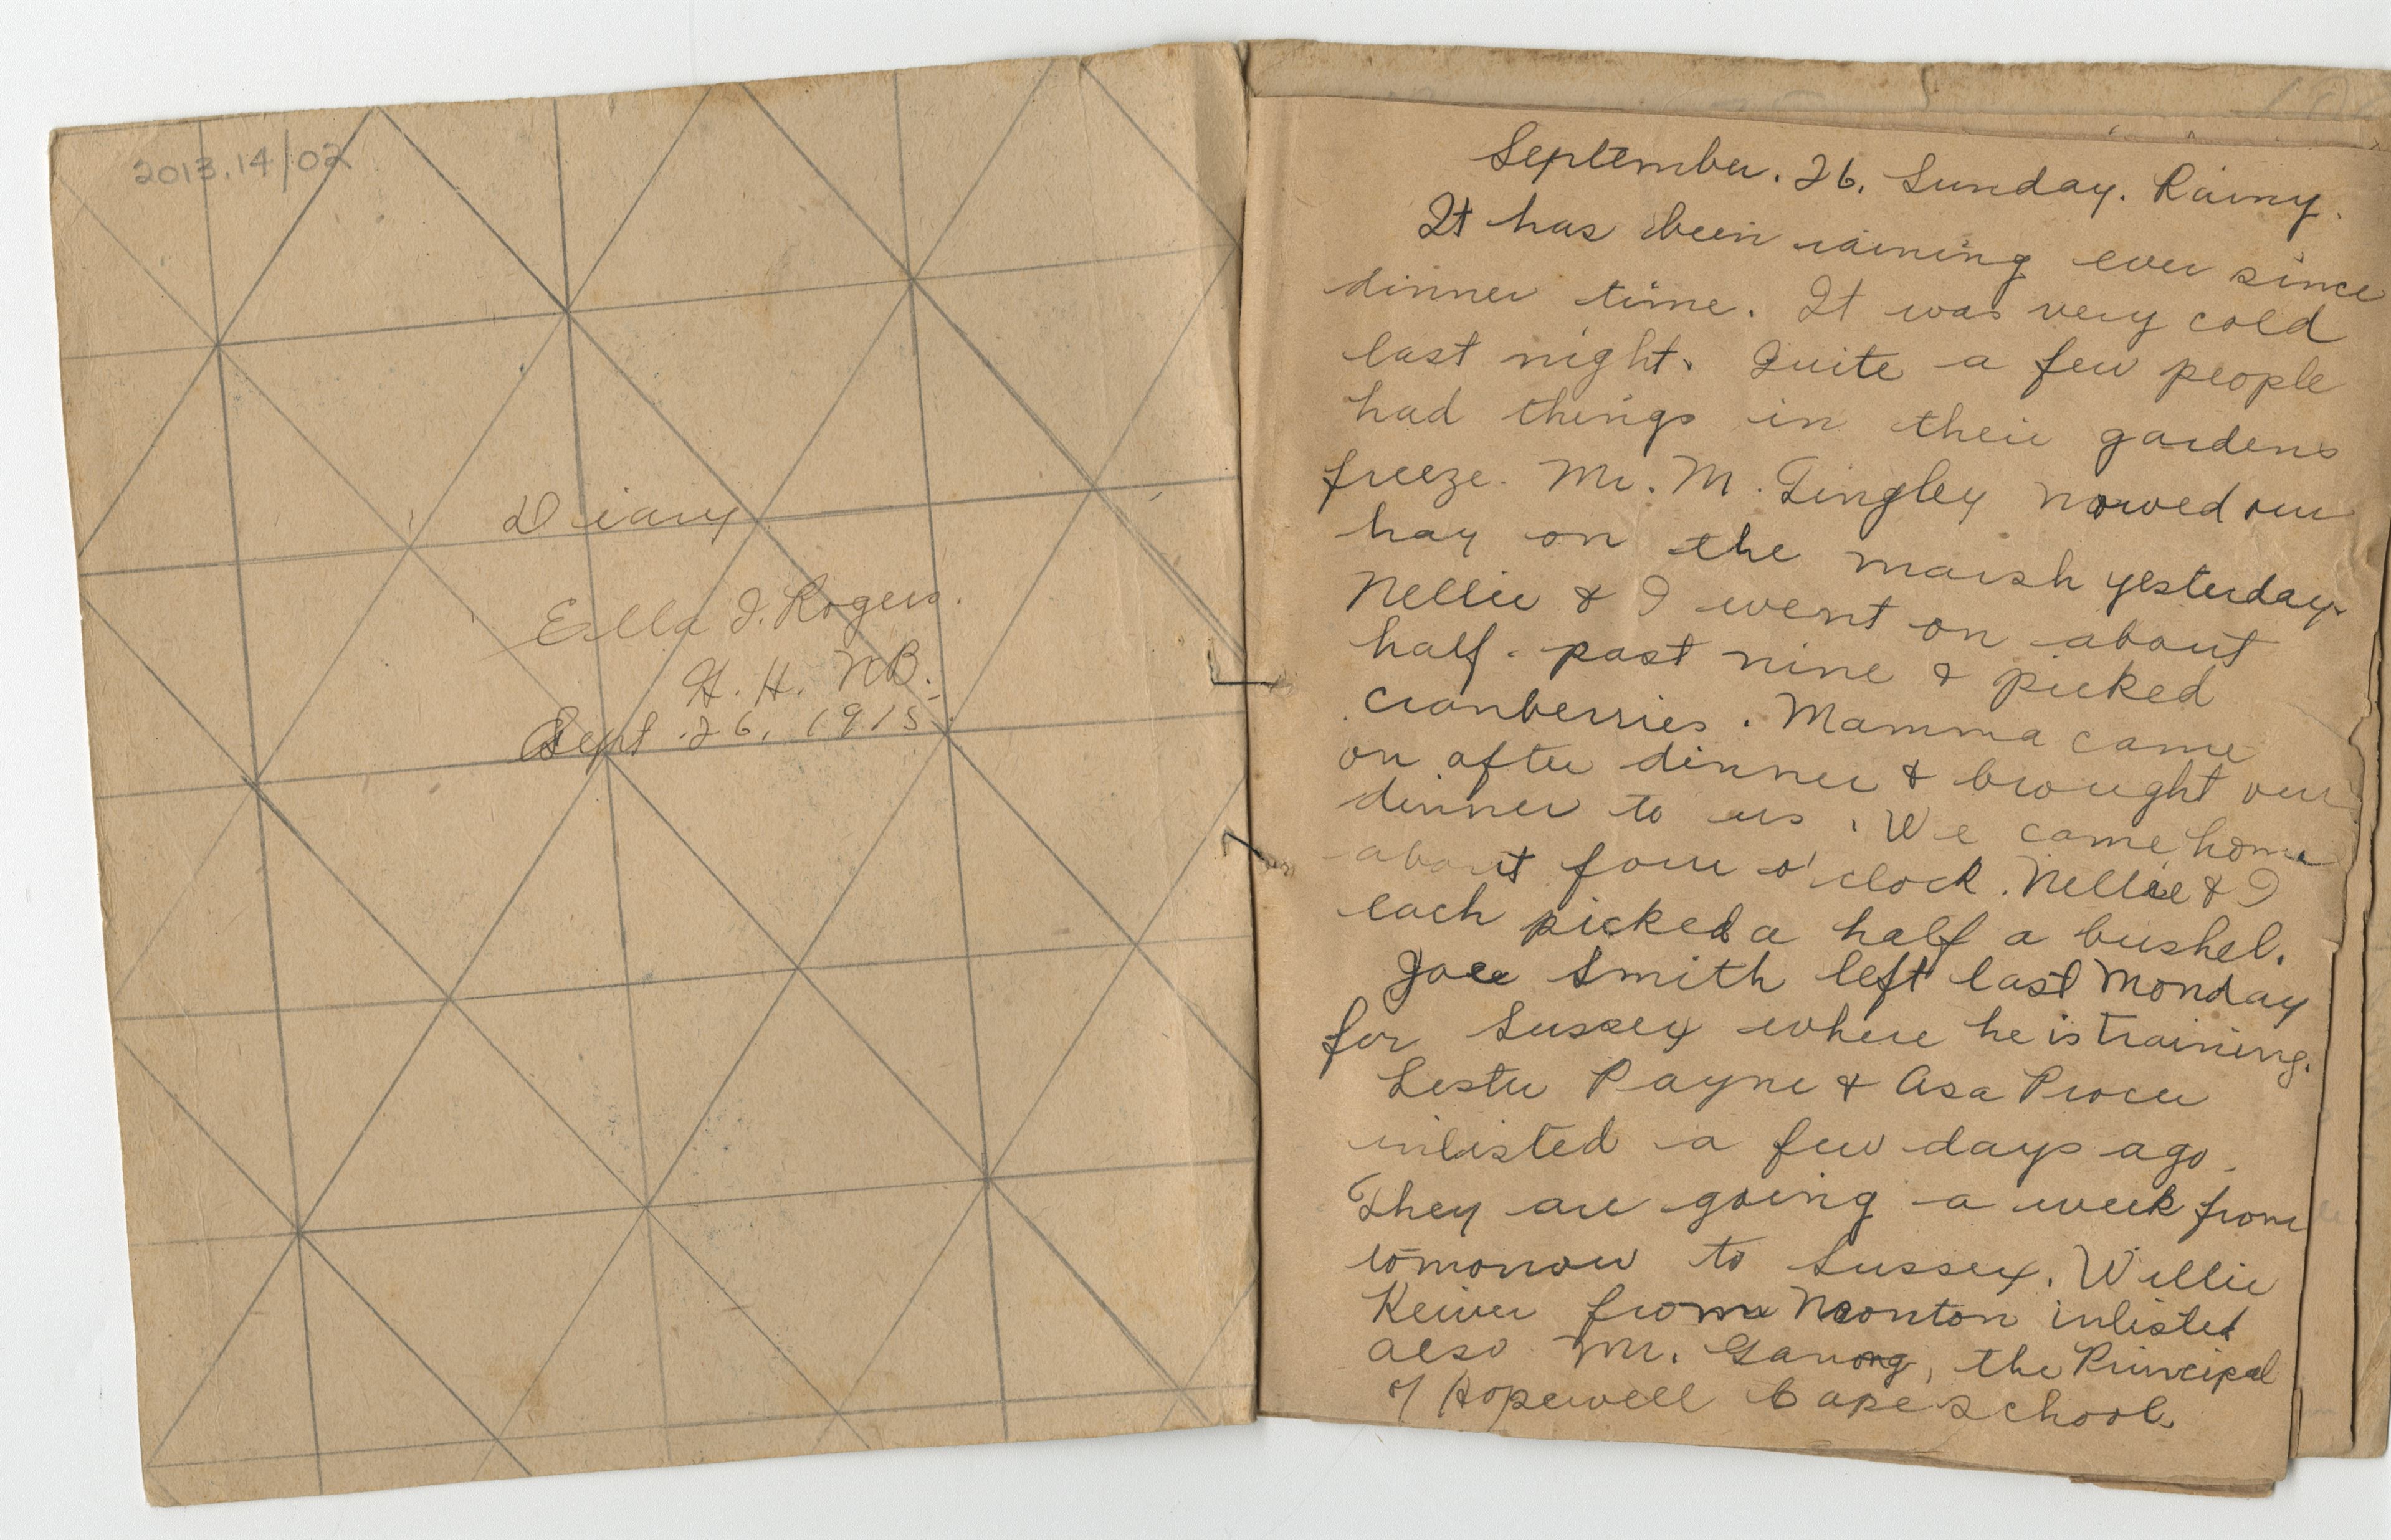 2013.14/02
Diary
Ella I. Rogers.
H. H. N.B.
Sept. 26, 1915
September. 26. Sunday. Rainy.
It has been raining ever since
dinner time. It was very cold
last night. Quite a few people
had things in their gardens
freeze. Mr. M. Tingley mowed our
hay on the marsh yesterday.
Nellie & I went on about
half-past nine & picked
cranberries. Mamma came
on after dinner & brought our
dinner to us. We came home
about four o'clock. Nellie & I
each picked a half a bushel.
Smith left last Monday
for Sussex where he is training.
Lester Payne & Asa
inlisted a few days ago.
They are going a week from
tomorrow to Sussex. Willie
Keiver from inlisted
also Mr. Ganong, the Principal
of Hopewell Cape School.